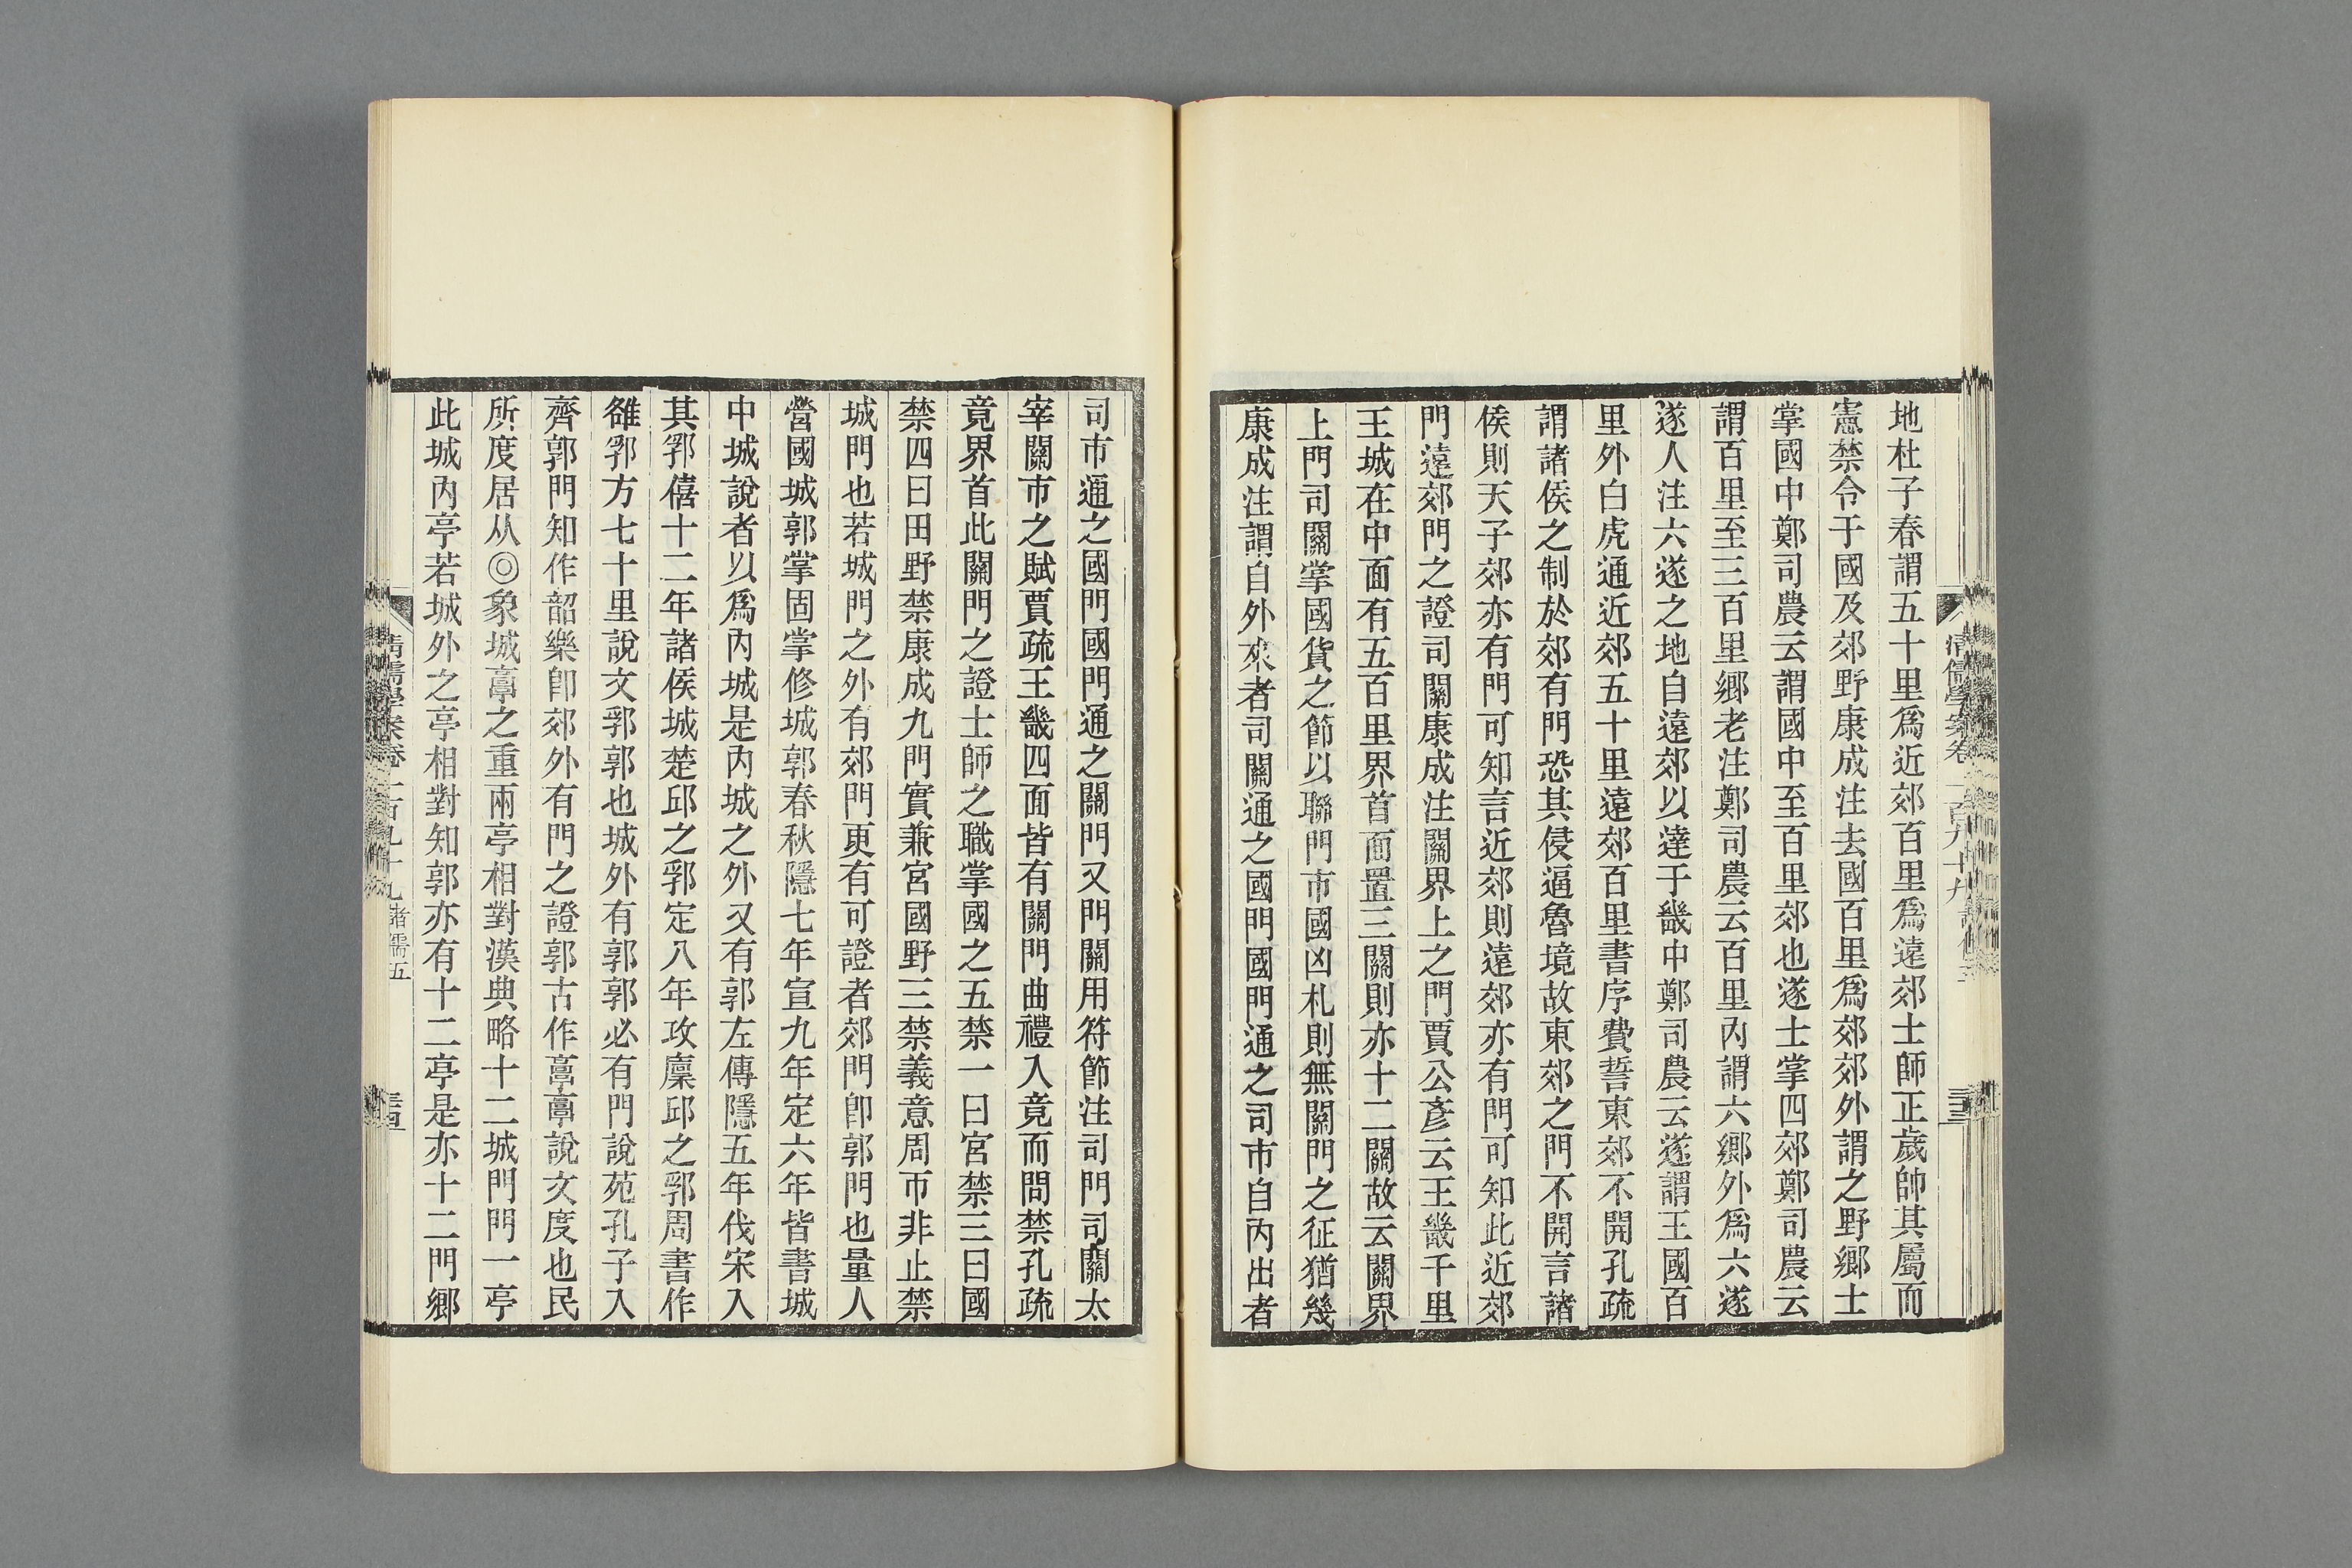 地杜子春謂五十里爲近郊百里爲遠郊士師正歲帥其屬而
憲禁令于國及郊野康成注去國百里爲郊郊外謂之野鄉士
掌國中鄭司農云謂國中至百里郊也遂士掌四郊鄭司農云
謂百里至三百里鄉老注鄭司農云百里內謂六鄉外爲六遂
遂人注六遂之地自遠郊以達于畿中鄭司農云遂謂王國百
里外白虎通近郊五十里遠郊百里書序費誓東郊不開孔疏
謂諸侯之制於郊有門恐其侵逼魯境故東郊之門不開言諸
侯則天子郊亦有門可知言近郊則遠郊亦有門可知此近郊
門遠郊門之證司關康成注關界上之門賈公彥云王畿千里
王城在中面有五百里界首面置三關則亦十二關故云關界
上門司關掌國貨之節以聯門市國凶札則無關門之征猶幾
康成注謂自外來者司關通之國門國門通之司市自內出者
清儒學案卷一百九十九
三十三
司市通之國門國門通之關門又門關用符節注司門司關太
宰關市之賦賈疏王畿四面皆有關門曲禮入竟而問禁孔疏
竟界首此關門之證士師之職掌國之五禁一曰宮禁三曰國
禁四曰田野禁康成九門實兼宮國野三禁義意周帀非止禁
城門也若城門之外有郊門更有可證者郊門卽郭門也量人
營國城郭掌固掌修城郭春秋隱七年宣九年定六年皆書城
中城說者以爲內城是內城之外又有郭左傳隱五年伐宋入
其郛僖十二年諸侯城楚邱之郛定八年攻廩邱之郛周書作
雒郛方七十里說文郛郭也城外有郭郭必有門說苑孔子入
齊郭門知作韶樂卽郊外有門之證郭古作𩫏𩫏說文度也民
所度居从◎象城𩫏之重兩亭相對漢典略十二城門門一亭
此城內亭若城外之亭相對知郭亦有十二亭是亦十二門鄉
清儒學案卷一百九十九 諸儒五
三十四